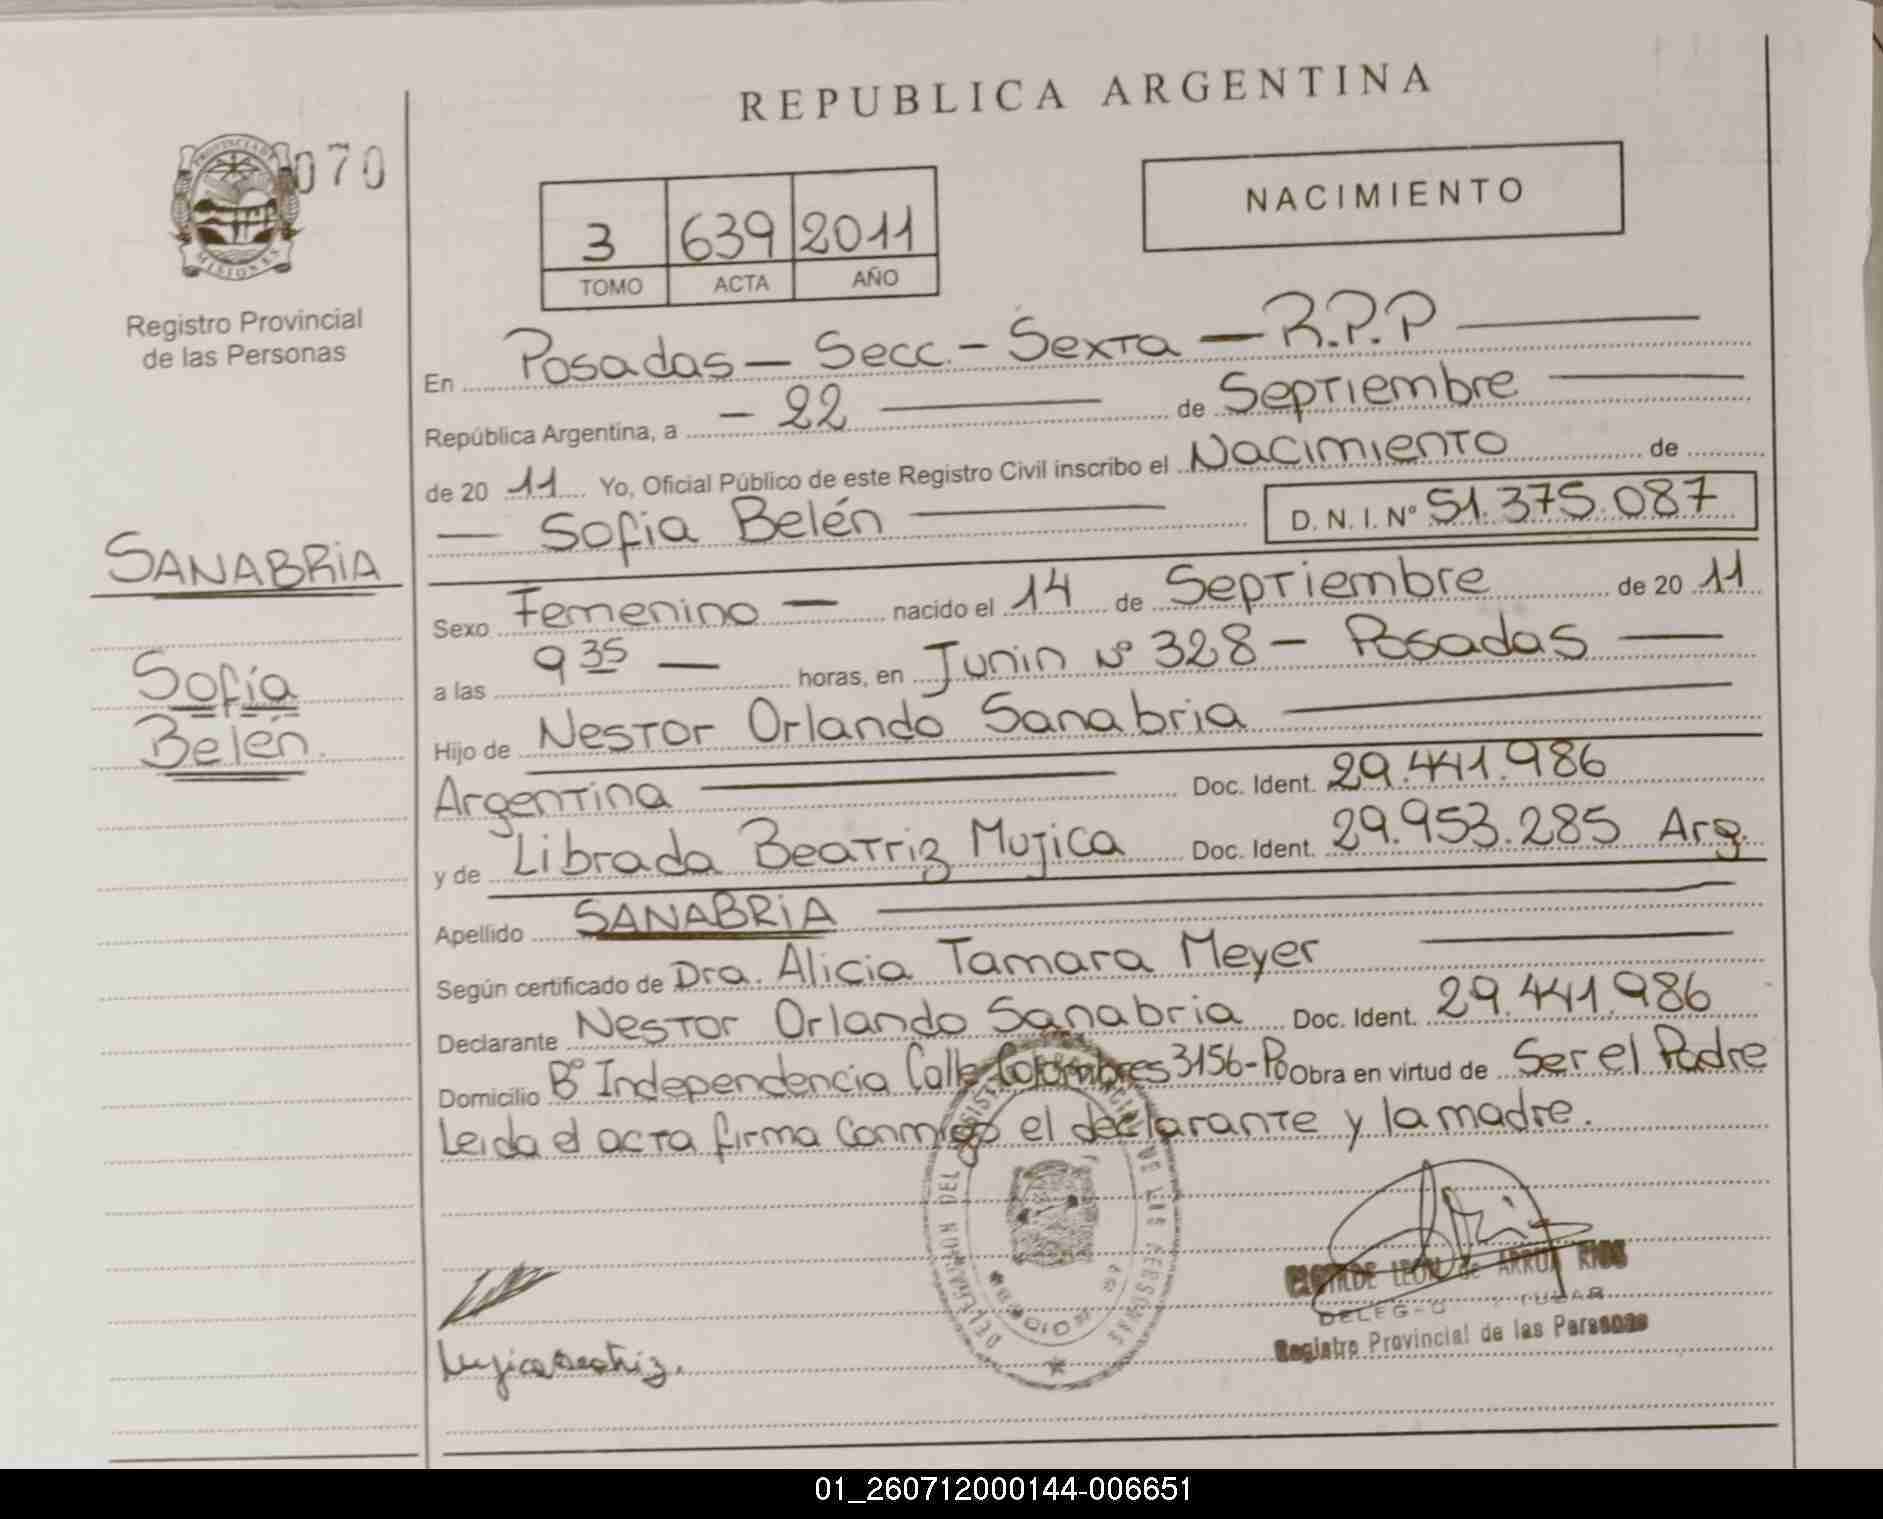 REPUBLICA ARGENTINA
070
PROVINCIA DE MISIONES
Registro Provincial
de las Personas
NACIMIENTO
3 639 2011
TOMO ACTA AÑO
En Posadas - Secc. - Sexta - R.P.P
República Argentina, a - 22 de Septiembre
de 20 11 Yo, Oficial Público de este Registro Civil inscribo el Nacimiento de
- Sofia Belén D. N. I. Nº 51.375.087
SANABRIA
Sofía
Belén.
Sexo Femenino - nacido el 14 de Septiembre de 20 11
a las 9 35 - horas, en Junin Nº 328 - Posadas
Hijo de Nestor Orlando Sanabria
Argentina Doc. Ident. 29.441.986
y de Librada Beatriz Mujica Doc. Ident. 29.953.285 Arg.
Apellido SANABRIA
Según certificado de Dra. Alicia Tamara Meyer
Declarante Nestor Orlando Sanabria Doc. Ident. 29.441.986
Domicilio Bº Independencia Calle Colombres 3156-Po Obra en virtud de Ser el Padre
Leida el acta firma conmigo el declarante y la madre.
Mujica Beatriz.
CLOTILDE LEON de ARRUA RIOS
Registro Provincial de las Personas
01_260712000144-006651